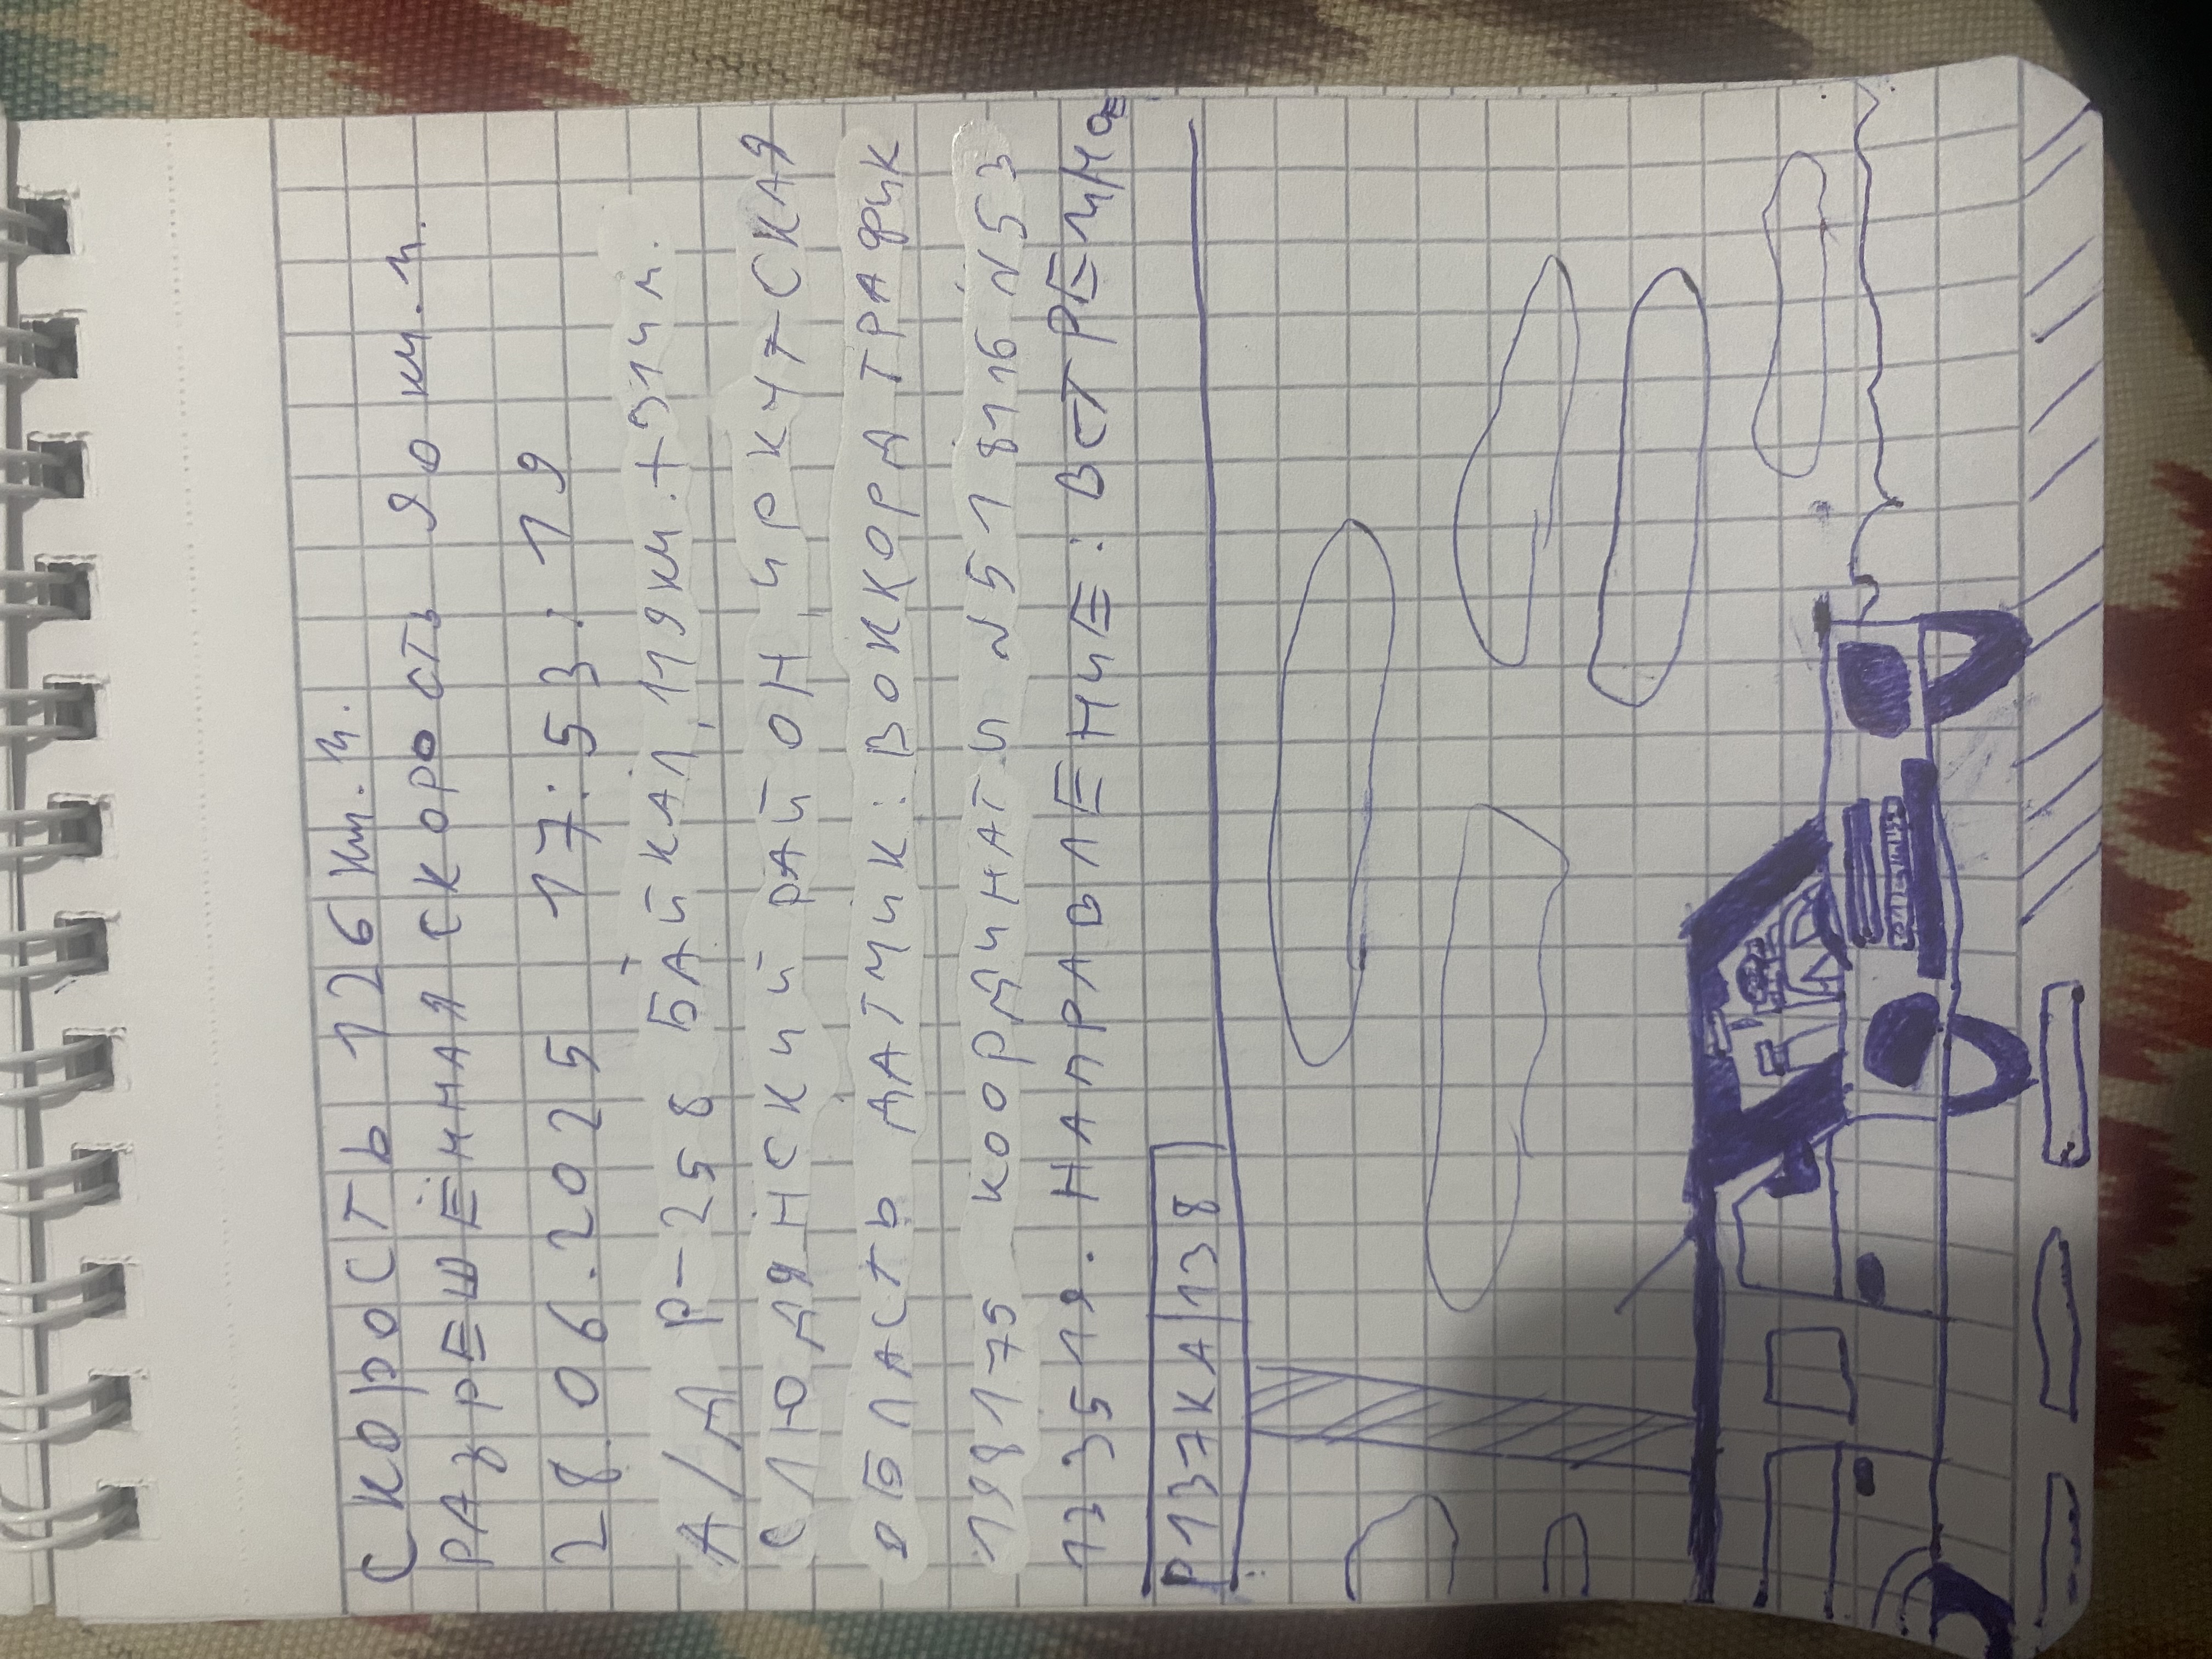 СКОРОСТЬ 126 км.ч.
РАЗРЕШЁННАЯ СКОРОСТЬ 90 км.ч.
28.06.2025 17:53:19
А/Д Р-258 БАЙКАЛ, 119 км.+31 ч м.
СЛЮДЯНСКИЙ РАЙОН, ИРКУТСКАЯ
ОБЛАСТЬ ДАТЧИК: ВОККОРД ТРАФИК
198175 КООРДИНАТЫ N 51 8116 N53
173519. НАПРАВЛЕНИЕ: ВСТРЕЧНОЕ
Р137КА|138